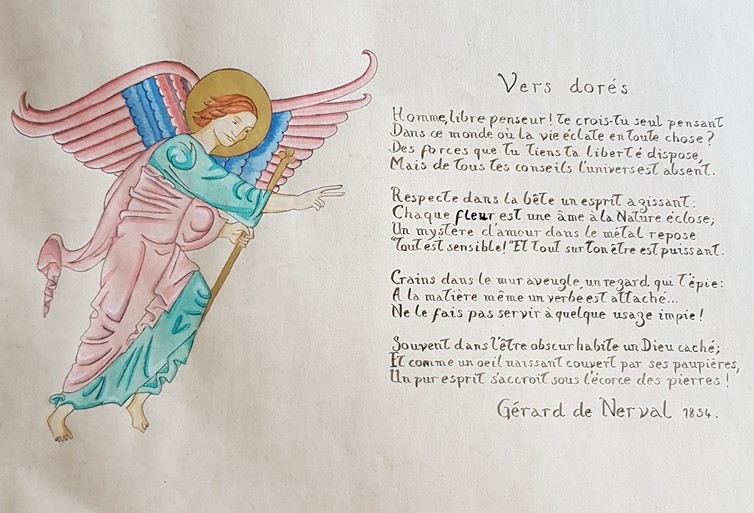 Vers dorés
Homme, libre penseur! te crois-tu seul pensant
Dans ce monde où la vie éclate en toute chose?
Des forces que tu tiens ta liberté dispose,
Mais de tous tes conseils l'univers est absent.
Respecte dans la bête un esprit agissant:
Chaque fleur est une âme à la Nature éclose;
Un mystère d'amour dans le métal repose
"Tout est sensible!" Et tout sur ton être est puissant.
Crains dans le mur aveugle, un regard qui t'épie:
A la matière même un verbe est attaché...
Ne le fais pas servir à quelque usage impie!
Souvent dans l'être obscur habite un Dieu caché;
Et comme un oeil naissant couvert par ses paupières,
Un pur esprit s'accroit sous l'écorce des pierres!
Gérard de Nerval 1854.